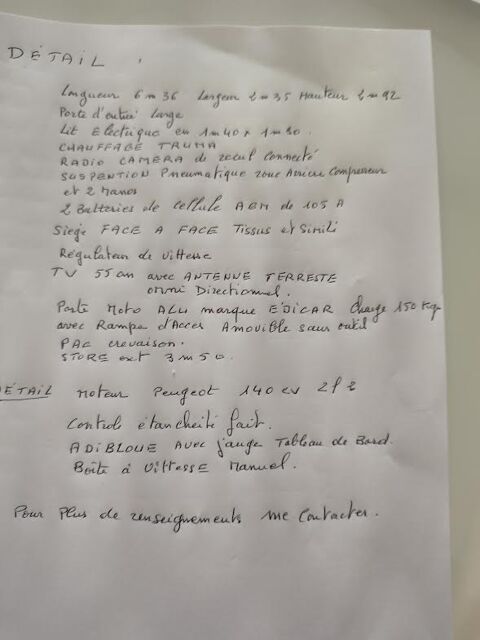 DÉTAIL :
Longueur 6m36 Largeur 2m35 Hauteur 2m92
Porte d'entrée large
Lit Electrique en 1m40 x 1m90.
CHAUFFAGE TRUMA
RADIO CAMERA de recul connecté
SUSPENTION Pneumatique roue Arriere Compresseur
et 2 Manos
2 Batteries de cellule AGM de 105 A
Siège FACE A FACE Tissus et Simili
Régulateur de vittesse
TV 55 cm avec ANTENNE TERRESTE
omni Directionnel.
Porte Moto ALU marque EDICAR charge 150 Kg
avec Rampe d'Acces Amovible sans outil
PAC crevaison.
STORE ext 3m50.
DÉTAIL Moteur Peugeot 140 cv 2l2
Controle étancheité fait.
ADIBLOUE AVEC jauge Tableau de Bord.
Boîte à vittesse Manuel.
Pour plus de renseignements me contacter.